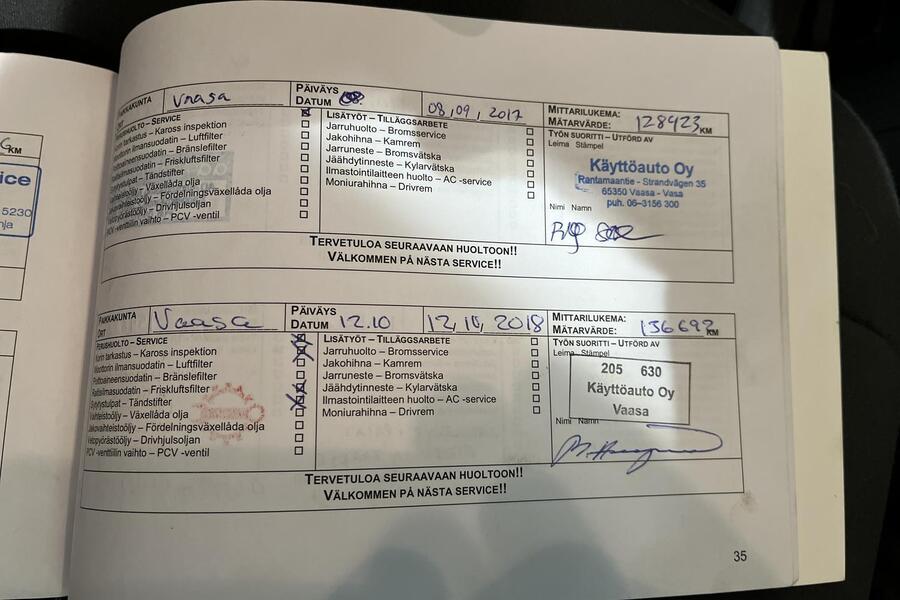 KM
ice
5230
nja
PAIKKAKUNTA Vaasa
PÄIVÄYS
DATUM 08, 09, 2017
MITTARILUKEMA:
MÄTARVÄRDE: 128923 KM
PERUSHUOLTO – SERVICE
Korin tarkastus – Kaross inspektion
Moottorin ilmansuodatin – Luftfilter
Polttoainesuodatin – Bränslefilter
Raitisilmasuodatin – Friskluftsfilter
Sytytystulpat – Tändstifter
Vaihteistoöljy – Växellåda olja
Jakovaihteistoöljy – Fördelningsväxellåda olja
Vetopyörästööljy – Drivhjulsoljan
PCV -venttiilin vaihto – PCV -ventil
LISÄTYÖT – TILLÄGGSARBETE
Jarruhuolto – Bromsservice
Jakohihna – Kamrem
Jarruneste – Bromsvätska
Jäähdytinneste – Kylarvätska
Ilmastointilaitteen huolto – AC -service
Moniurahihna – Drivrem
TYÖN SUORITTI – UTFÖRD AV
Leima Stämpel
Käyttöauto Oy
Rantamaantie - Strandvägen 35
65350 Vaasa - Vasa
puh. 06-3156 300
Nimi Namn
TERVETULOA SEURAAVAAN HUOLTOON!!
VÄLKOMMEN PÅ NÄSTA SERVICE!!
PAIKKAKUNTA Vaasa
ORT
PÄIVÄYS
DATUM 12.10 12, 10, 2018
MITTARILUKEMA:
MÄTARVÄRDE: 136692 KM
PERUSHUOLTO – SERVICE
Korin tarkastus – Kaross inspektion
Moottorin ilmansuodatin – Luftfilter
Polttoainesuodatin – Bränslefilter
Raitisilmasuodatin – Friskluftsfilter
Sytytystulpat – Tändstifter
Vaihteistoöljy – Växellåda olja
Jakovaihteistoöljy – Fördelningsväxellåda olja
Vetopyörästööljy – Drivhjulsoljan
PCV -venttiilin vaihto – PCV -ventil
LISÄTYÖT – TILLÄGGSARBETE
Jarruhuolto – Bromsservice
Jakohihna – Kamrem
Jarruneste – Bromsvätska
Jäähdytinneste – Kylarvätska
Ilmastointilaitteen huolto – AC -service
Moniurahihna – Drivrem
TYÖN SUORITTI – UTFÖRD AV
Leima Stämpel
205 630
Käyttöauto Oy
Vaasa
Nimi Namn
TERVETULOA SEURAAVAAN HUOLTOON!!
VÄLKOMMEN PÅ NÄSTA SERVICE!!
35